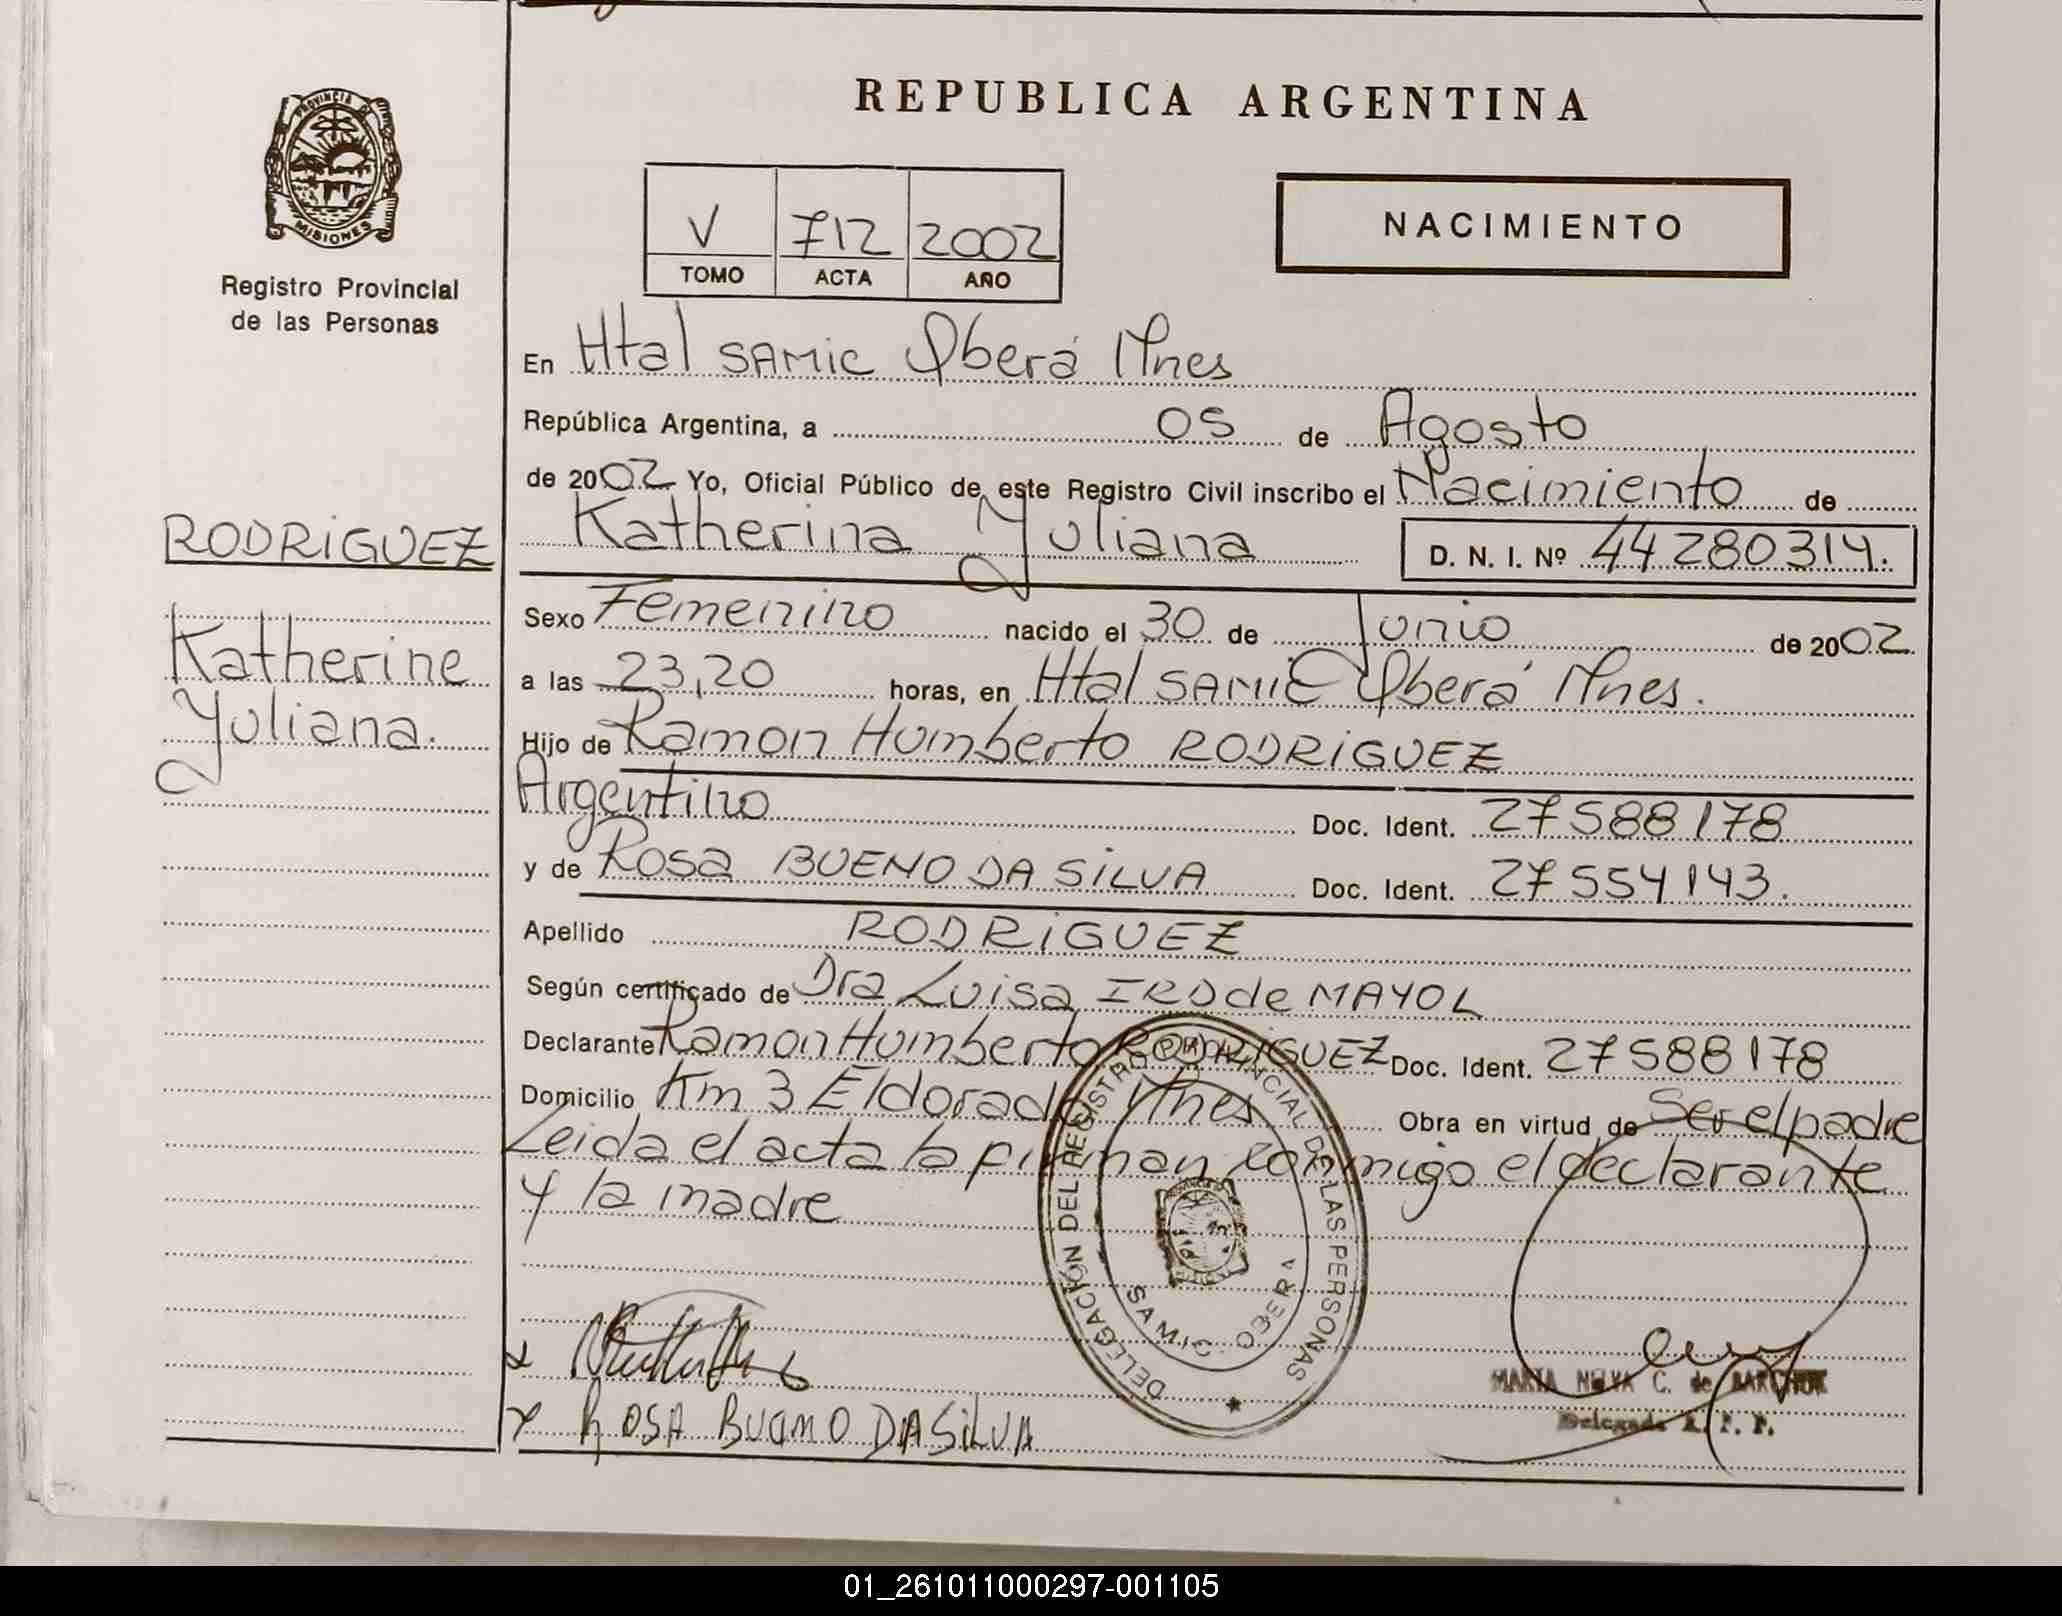 REPUBLICA ARGENTINA
PROVINCIA DE MISIONES
Registro Provincial
de las Personas
V 712 2002
TOMO ACTA AÑO
NACIMIENTO
En Htal SAMIC Oberá Mnes
República Argentina, a 05 de Agosto
de 2002 Yo, Oficial Público de este Registro Civil inscribo el Nacimiento de
Katherina Yuliana D. N. I. Nº 44280314.
RODRIGUEZ
Katherine
Yuliana.
Sexo Femenino nacido el 30 de Junio de 2002
a las 23,20 horas, en Htal SAMIC Oberá Mnes.
Hijo de Ramon Humberto RODRIGUEZ
Argentino Doc. Ident. 27588178
y de Rosa BUENO DA SILVA Doc. Ident. 27554143.
Apellido RODRIGUEZ
Según certificado de Dra Luisa IRD de MAYOL
Declarante Ramon Humberto RODRIGUEZ Doc. Ident. 27588178
Domicilio Km 3 Eldorado Mnes Obra en virtud de Ser el padre
Leida el acta la firman conmigo el declarante
y la madre
DELEGACIÓN DEL REGISTRO PROVINCIAL DE LAS PERSONAS
SAMIC OBERA
x
x ROSA BUAMO DASILVA
MARIA NELVA C. de
Delegada R. P. P.
01_261011000297-001105